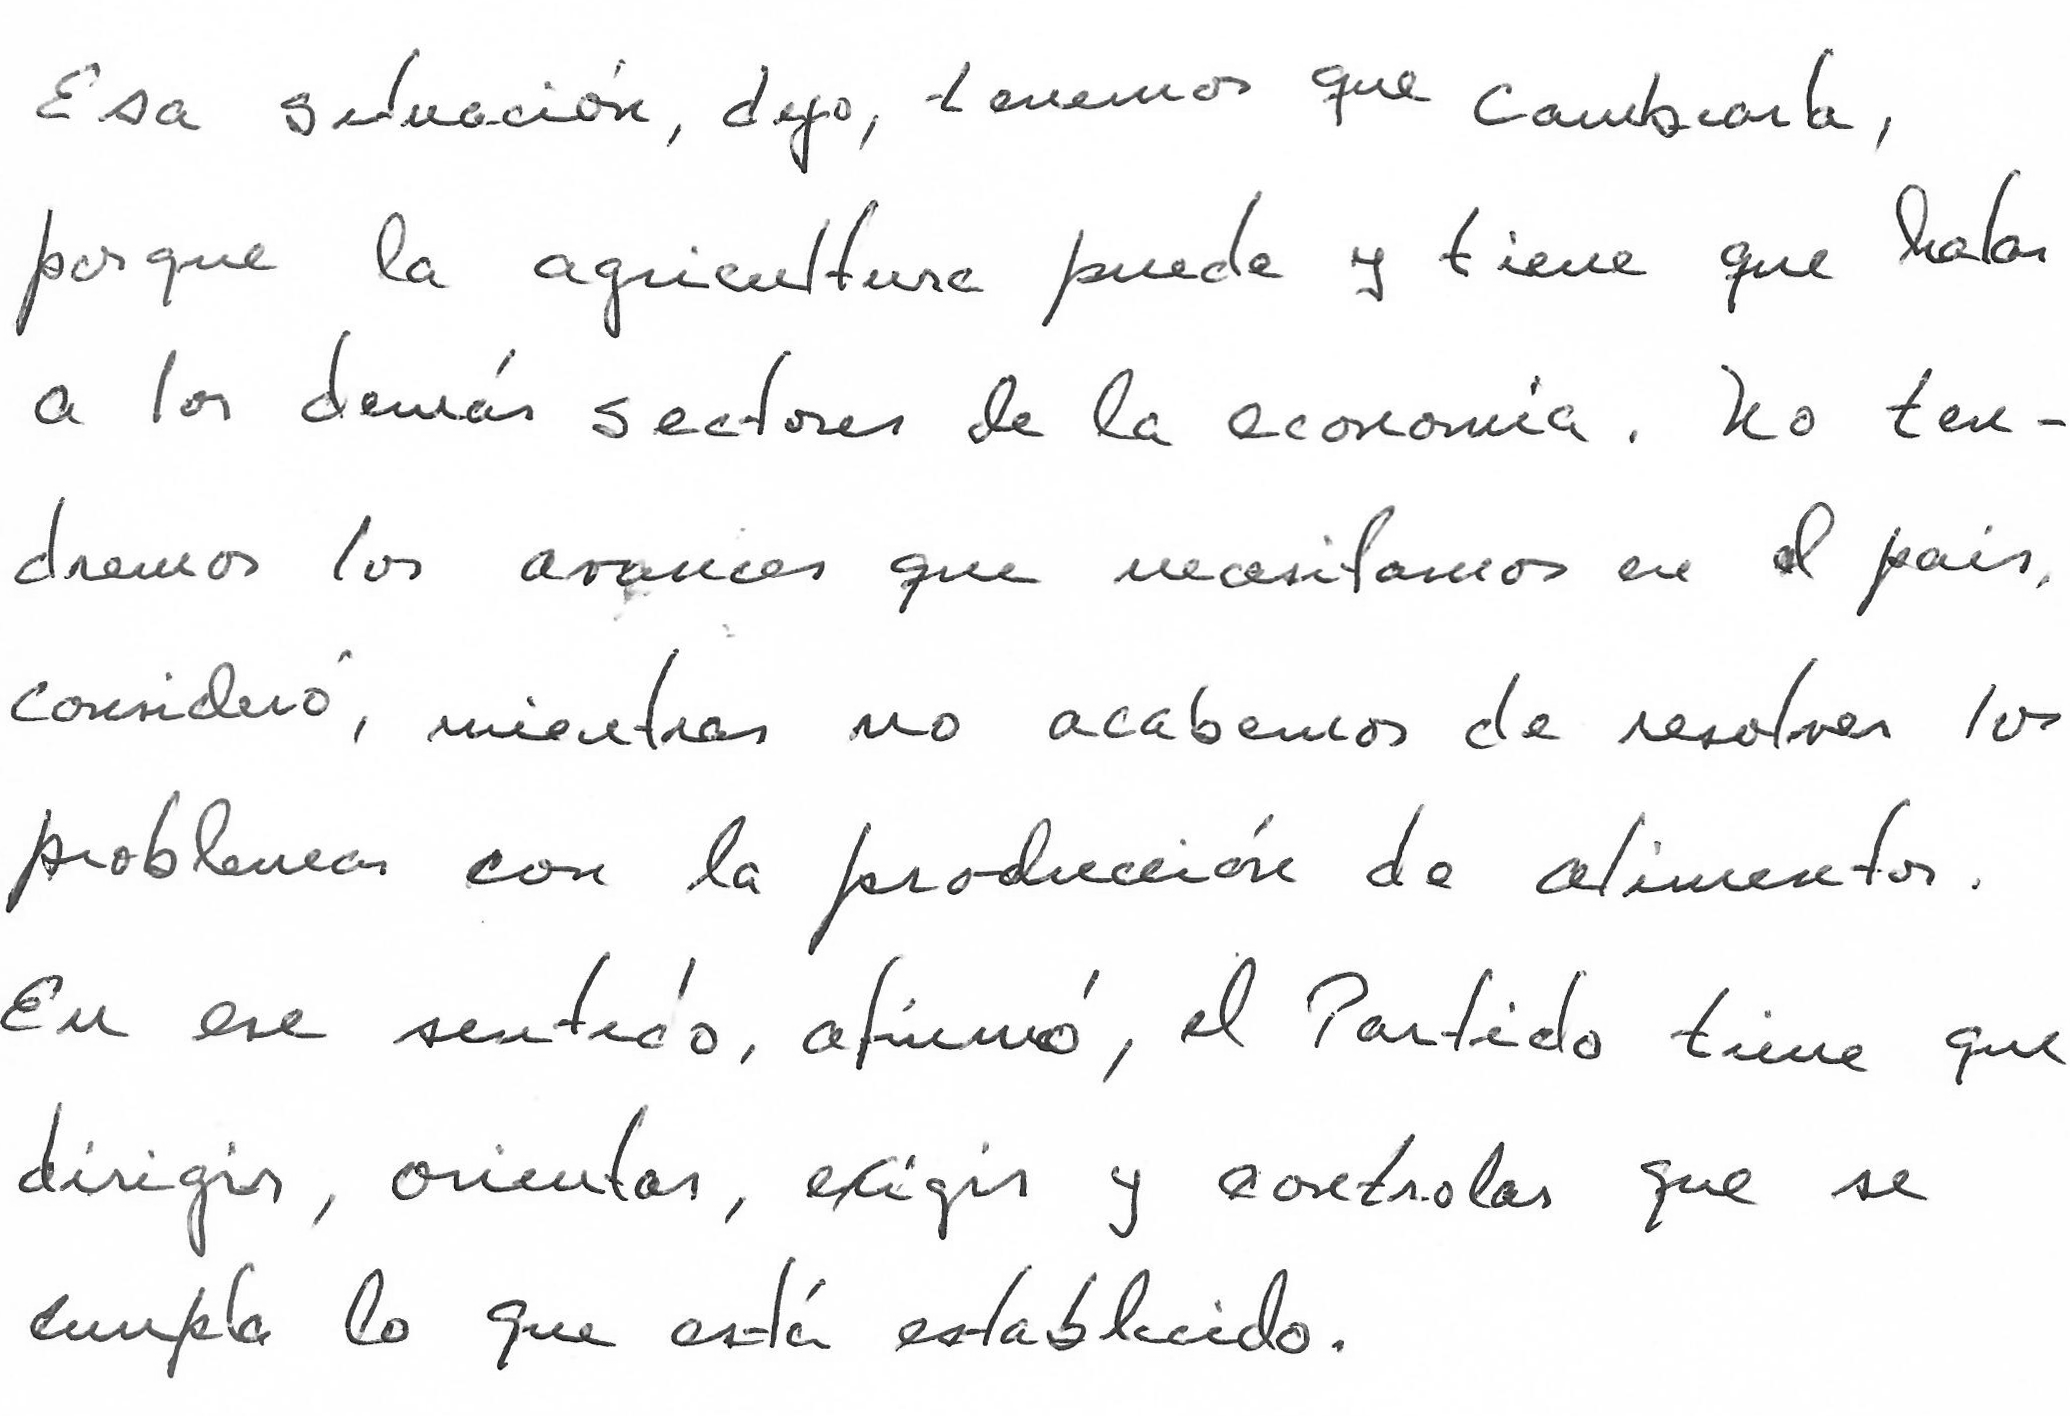 Esa situación, dijo, tenemos que cambiarla,
porque la agricultura puede y tiene que halar
a los demás sectores de la economía. No ten-
dremos los avances que necesitamos en el país,
consideró, mientras no acabemos de resolver los
problemas con la producción de alimentos.
En ese sentido, afirmó, el Partido tiene que
dirigir, orientar, exigir y controlar que se
cumpla lo que está establecido.